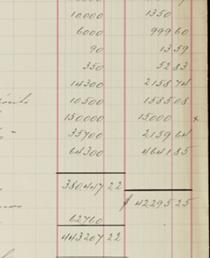 10000 1350
6000 999 60
90 13 59
350 52 83
14300 2158 74
10500 1585 08
150000 15000 x
35700 2159 64
64300 4641 85
380447 22
$ 42295 25
62760
443207 22